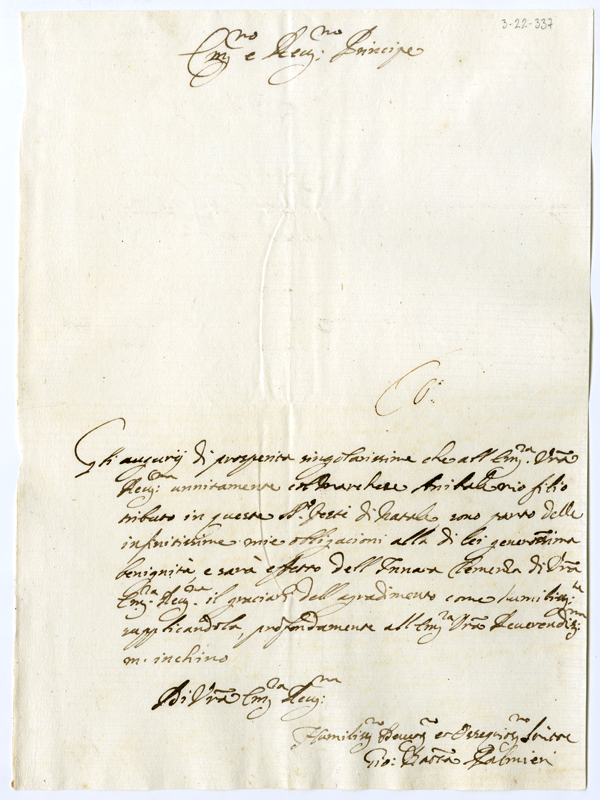 3-22-337
Em.mo e Reu.mo Principe
Gli augurij di prosperità singolarissime che all'Em.za V.ra
Reu.ma unnitamente col Marchese Anibale mio filio
tributo in queste S.te Feste di Natale sono parto delle
infinitissime mie obligazioni alla di lei generosissima
benignità, e sarà effetto dell'Innata Clemenza di V.ra
Em.za Reu.ma il graciarli dell'agradimento come humilm.te
supplicandola, profondamente all'Em.za V.ra Reuerendiss.ma
m'inchino
Di V.ra Em.za Reu.ma
Humiliss.mo Deuot.mo et Ossequios.mo Seruitore
Gio: Batta Palmieri